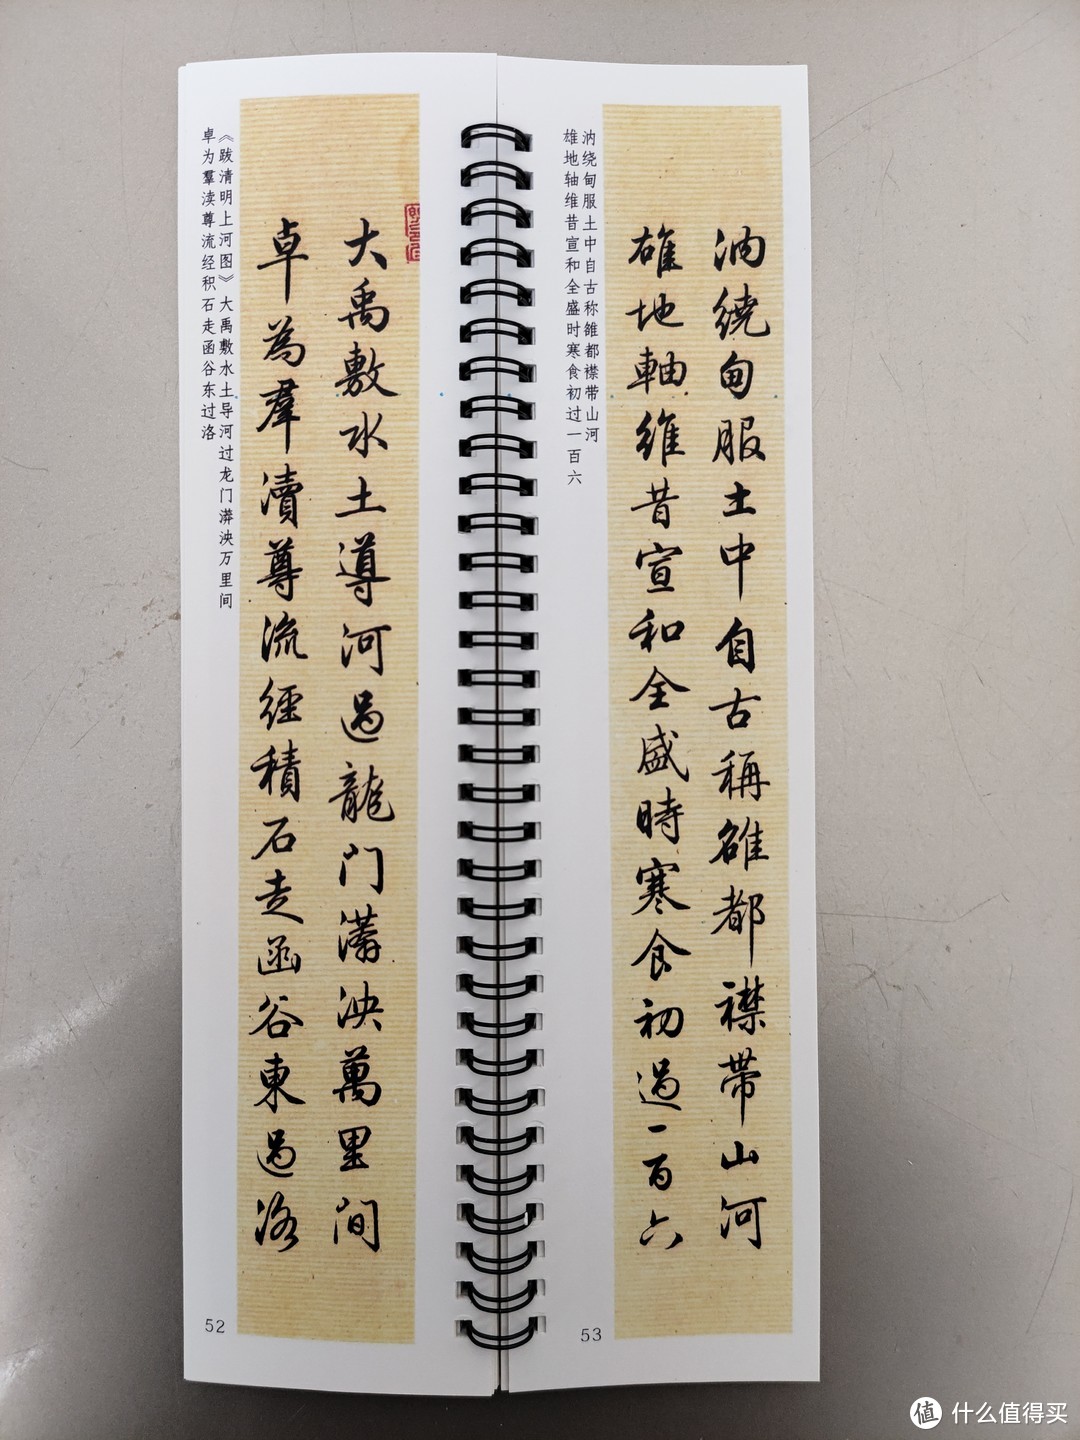 《跋清明上河图》大禹敷水土导河过龙门漭泱万里间
卓为羣渎尊流经积石走函谷东过洛
大禹敷水土導河過龍門漭泱萬里間
卓為羣瀆尊流經積石走函谷東過洛
52
汭绕甸服土中自古称雒都襟带山河
雄地轴维昔宣和全盛时寒食初过一百六
汭繞甸服土中自古稱雒都襟帶山河
雄地軸維昔宣和全盛時寒食初過一百六
53
值 什么值得买